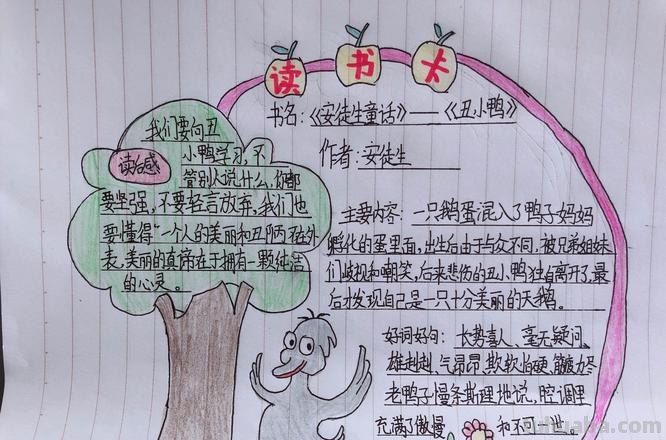 读书卡
书名:《安徒生童话》——《丑小鸭》
作者:安徒生
读后感
我们要向丑
小鸭学习,不
管别人说什么,你都
要坚强,不要轻言放弃,我们也
要懂得"一个人的美丽和丑陋不在外
表,美丽的真谛在于拥有一颗纯洁
的心灵。
主要内容:一只鹅蛋混入了鸭子妈妈
孵化的蛋里面,出生后由于与众不同,被兄弟姐妹
们歧视和嘲笑,后来悲伤的丑小鸭独自离开了,最
后才发现自己是一只十分美丽的天鹅。
好词好句:长势喜人、毫无疑问、
雄赳赳、气昂昂、欺软怕硬、筋疲力尽
老鸭子慢条斯理地说,腔调里
充满了傲慢 和不可一世